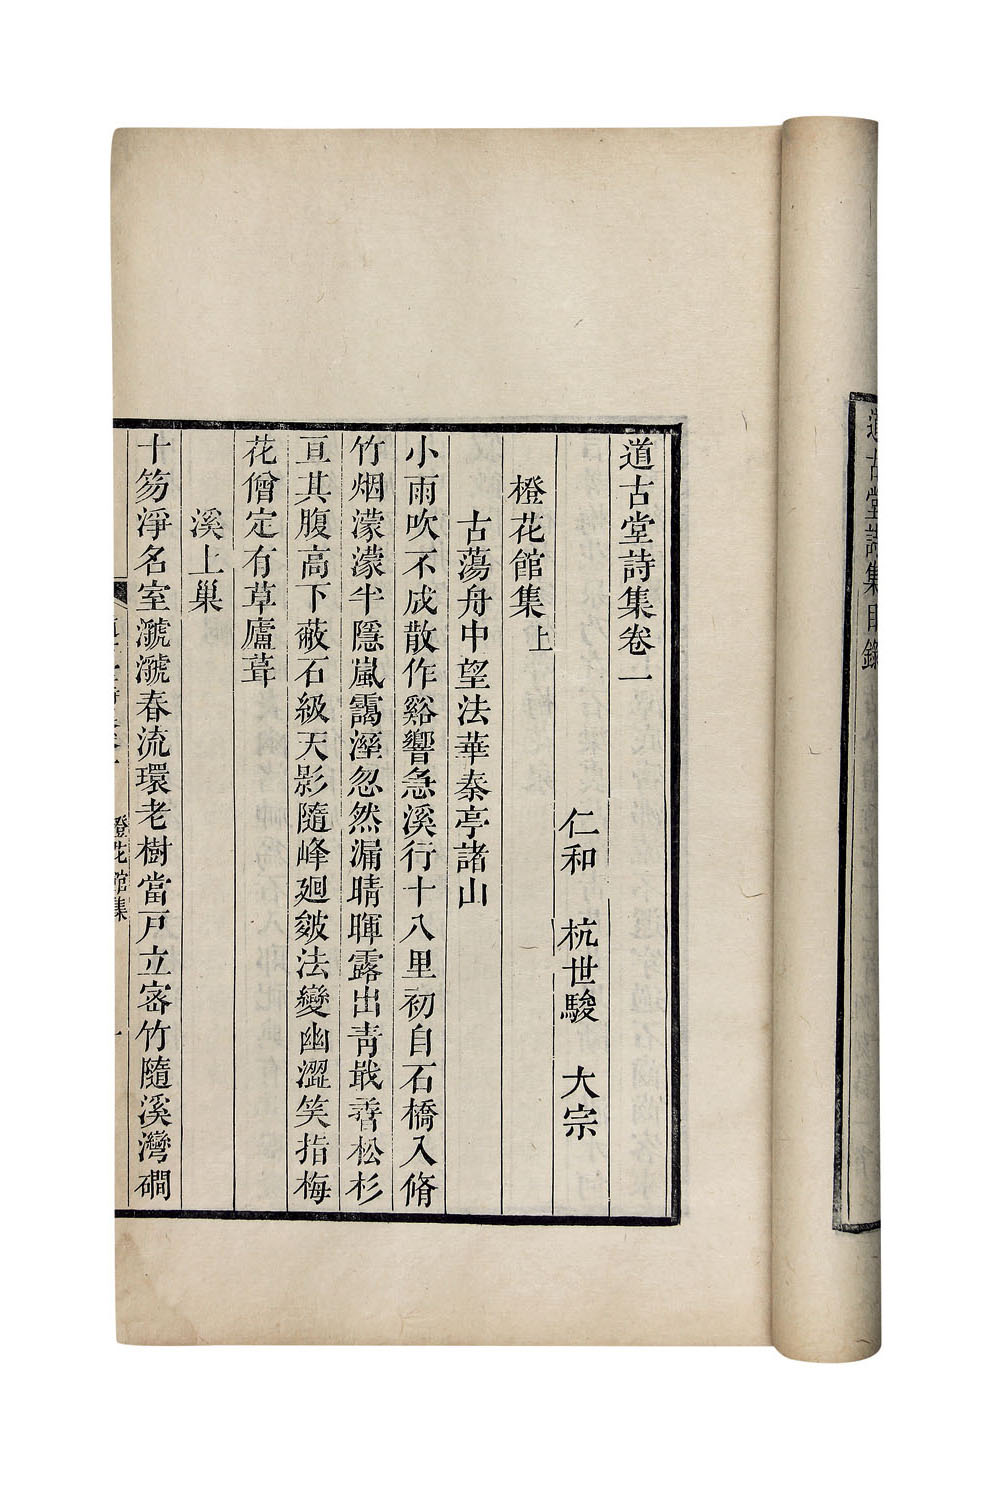 道古堂詩集目錄
道古堂詩集卷一
仁和 杭世駿 大宗
橙花館集上
古蕩舟中望法華秦亭諸山
小雨吹不成散作谿響急溪行十八里初自石橋入脩
竹烟濛濛半隱嵐靄溼忽然漏晴暉露出青戢孴松杉
亘其腹高下蔽石級天影隨峰廻皴法變幽澀笑指梅
花僧定有草廬葺
溪上巢
十笏淨名室㶁㶁春流環老樹當戸立密竹隨溪灣磵
橙花館集 一